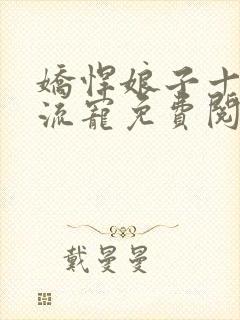 嬌悍娘子十
流寵免費閱
戴曼曼